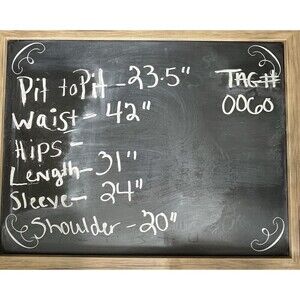 Pit to Pit - 23.5"
Waist - 42"
Hips -
Length - 31"
Sleeve - 24"
Shoulder - 20"
TAG#
0060